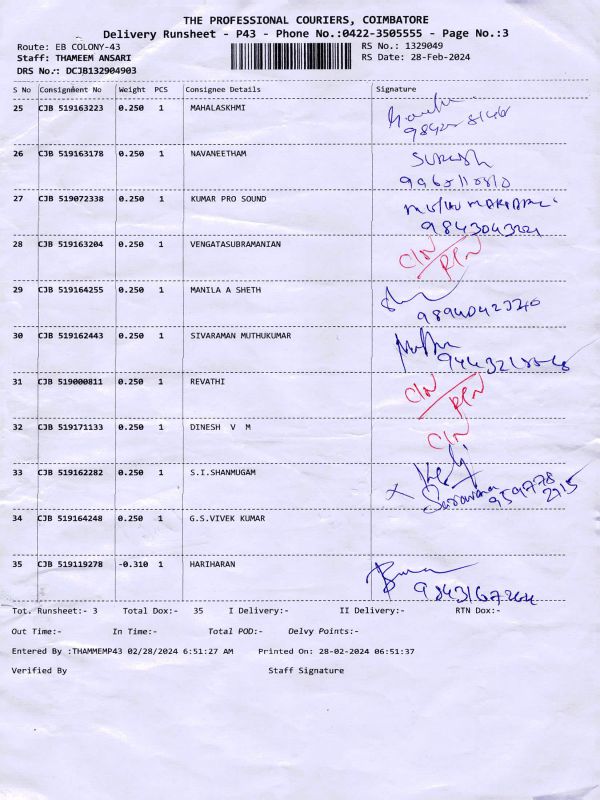 THE PROFESSIONAL COURIERS, COIMBATORE
Delivery Runsheet - P43 - Phone No.:0422-3505555 - Page No.:3
Route: EB COLONY-43 RS No.: 1329049
Staff: THAMEEM ANSARI RS Date: 28-Feb-2024
DRS No.: DCJB132904903
S No Consignment No Weight PCS Consignee Details Signature
25 CJB 519163223 0.250 1 MAHALASKHMI
26 CJB 519163178 0.250 1 NAVANEETHAM SURESH
27 CJB 519072338 0.250 1 KUMAR PRO SOUND
28 CJB 519163204 0.250 1 VENGATASUBRAMANIAN C/N
29 CJB 519164255 0.250 1 MANILA A SHETH
9894042320
30 CJB 519162443 0.250 1 SIVARAMAN MUTHUKUMAR
31 CJB 519000811 0.250 1 REVATHI C/N
32 CJB 519171133 0.250 1 DINESH V M C/N
33 CJB 519162282 0.250 1 S.I.SHANMUGAM
Saravana
34 CJB 519164248 0.250 1 G.S.VIVEK KUMAR
35 CJB 519119278 -0.310 1 HARIHARAN
9843167264
Tot. Runsheet:- 3 Total Dox:- 35 I Delivery:- II Delivery:- RTN Dox:-
Out Time:- In Time:- Total POD:- Delvy Points:-
Entered By :THAMMEMP43 02/28/2024 6:51:27 AM Printed On: 28-02-2024 06:51:37
Verified By Staff Signature